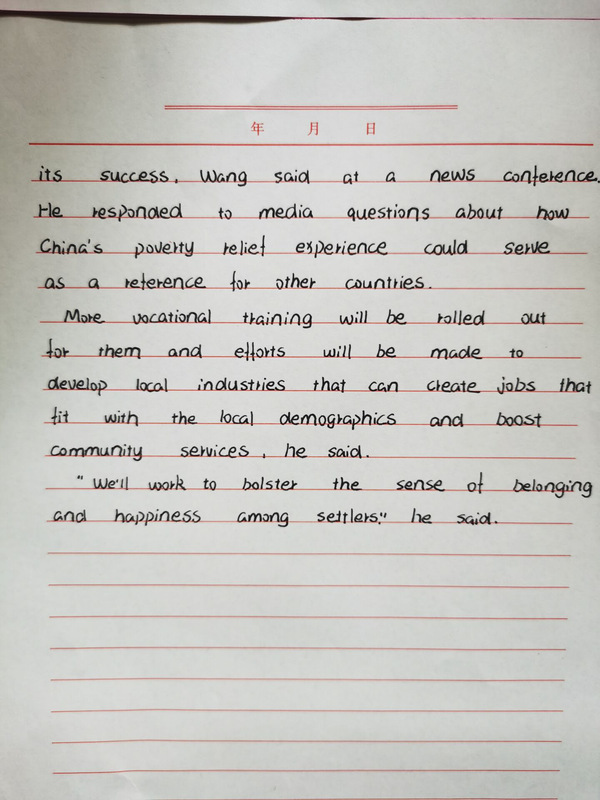 年 月 日
its success, Wang said at a news conference.
He responded to media questions about how
China's poverty relief experience could serve
as a reference for other countries.
More vocational training will be rolled out
for them and efforts will be made to
develop local industries that can create jobs that
fit with the local demographics and boost
community services, he said.
"We'll work to bolster the sense of belonging
and happiness among settlers." he said.